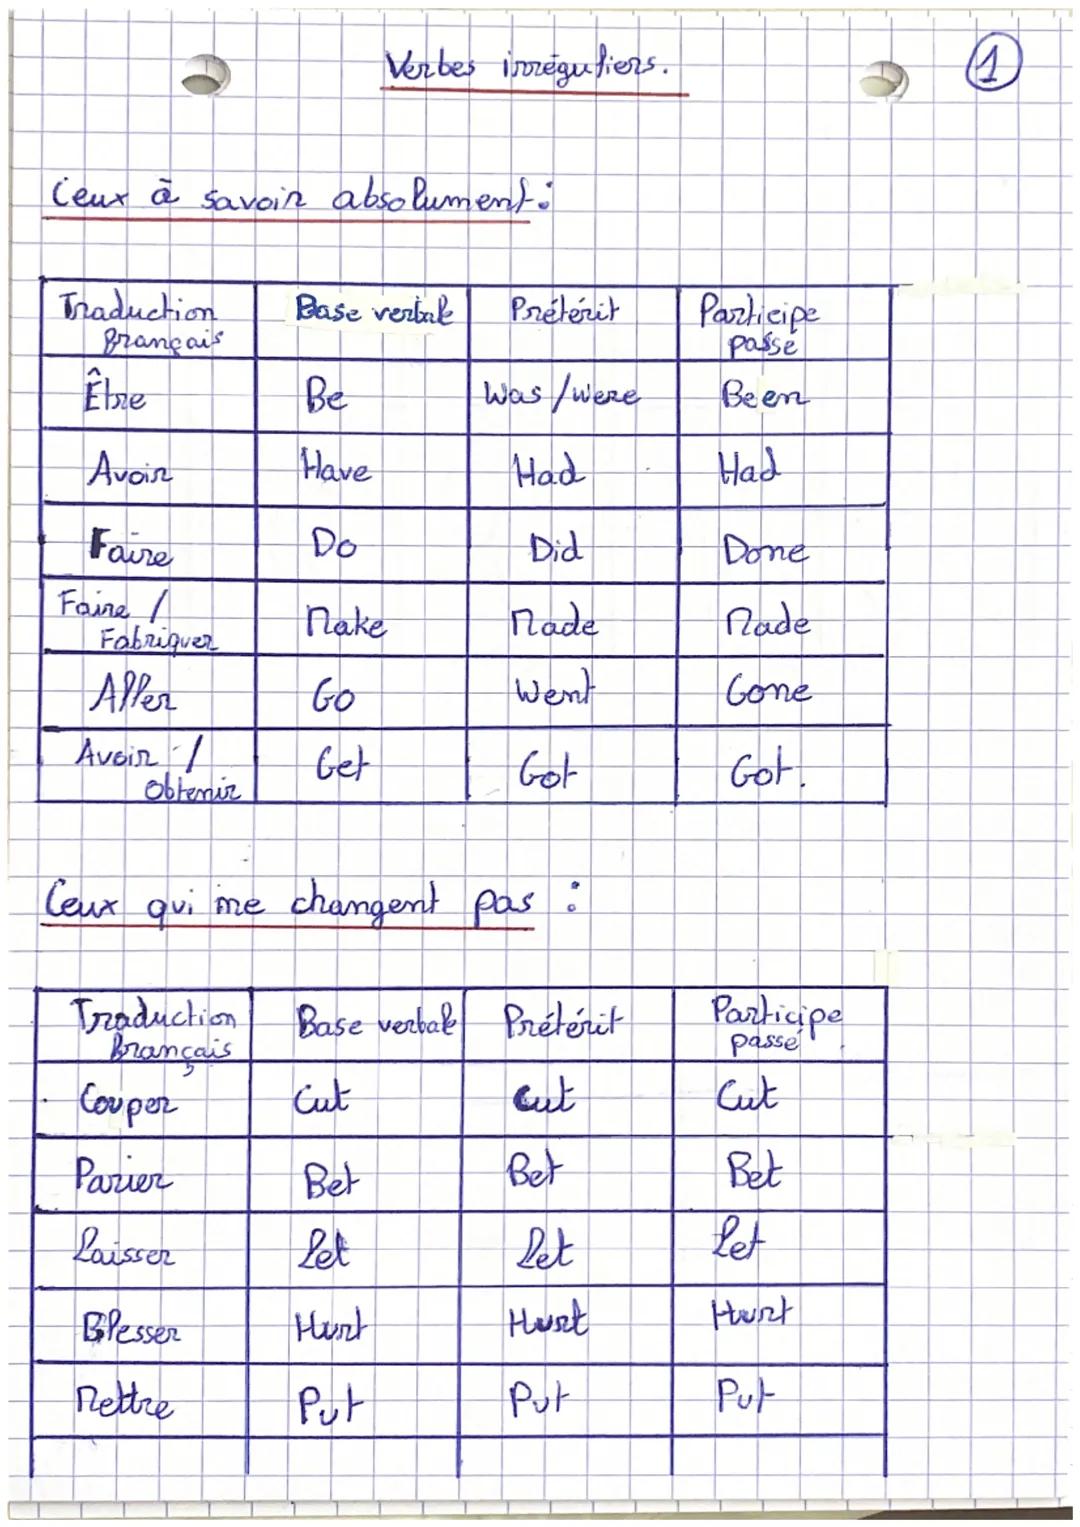 Verbes irréguliers.
1
Ceux à savoir absolument :
Traduction français Base verbale Prétérit Participe passé
Être Be Was / Were Been
Avoir Have Had Had
Faire Do Did Done
Faire / Fabriquer Make Made Made
Aller Go Went Gone
Avoir / Obtenir Get Got Got.
Ceux qui ne changent pas :
Traduction français Base verbale Prétérit Participe passé
Couper Cut Cut Cut
Parier Bet Bet Bet
Laisser Let Let Let
Blesser Hurt Hurt Hurt
Mettre Put Put Put